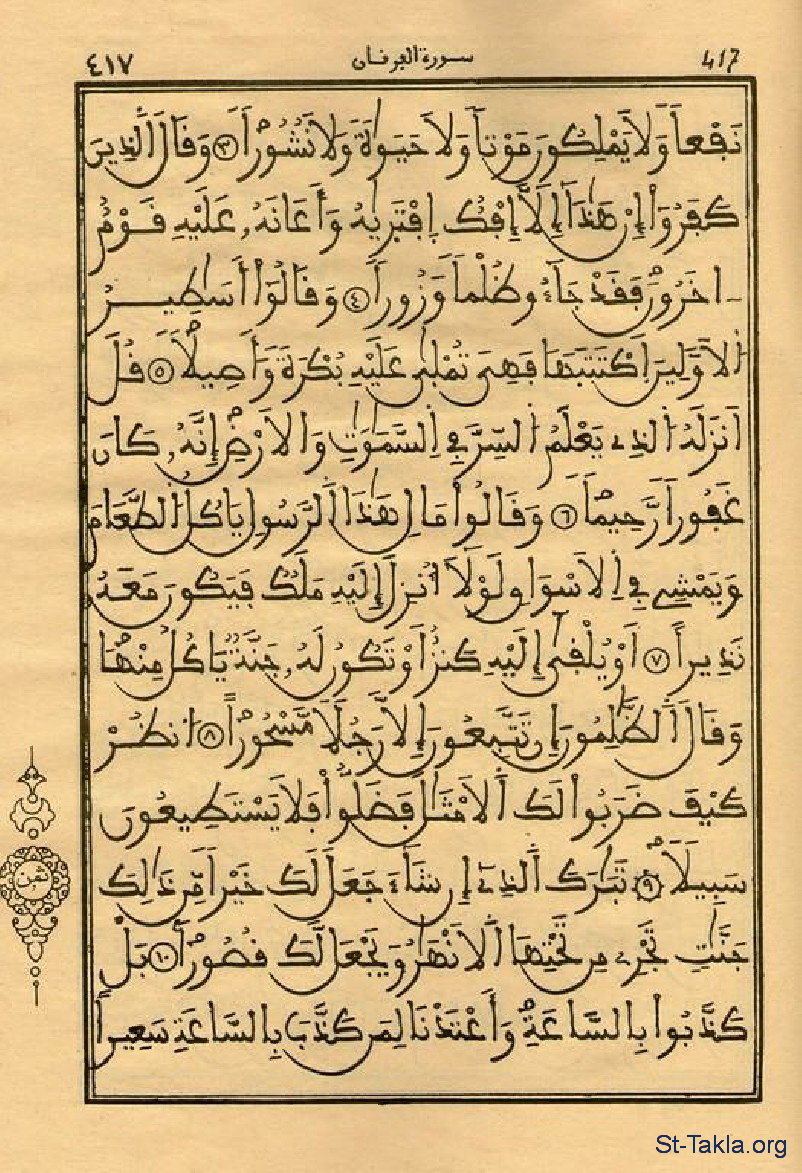 ٤١٧ سورة الفرقان 417
نَفْعاً وَلَا يَمْلِكُونَ مَوْتاً وَلَا حَيَوٰةً وَلَا نُشُوراً ٣ وَقَالَ ٱلذِينَ
كَفَرُوٓاْ إِنْ هَٰذَآ إِلَّآ إِفْكٌ اِفْتَرَيٰهُ وَأَعَانَهُۥ عَلَيْهِ قَوْمٌ
ـاخَرُونَ فَقَدْ جَآءُو ظُلْماً وَزُوراً ٤ وَقَالُوٓاْ أَسَٰطِيرُ
اُ۬لَاوَّلِينَ اَكْتَتَبَهَا فَهِيَ تُمْلَىٰ عَلَيْهِ بُكْرَةً وَأَصِيلاً ٥ قُلَ
اَنزَلَهُ اُ۬لذِے يَعْلَمُ اُ۬لسِّرَّ فِے اِ۬لسَّمَٰوَٰتِ وَالَارْضِ إِنَّهُۥ كَانَ
غَفُوراً رَّحِيماً ٦ وَقَالُواْ مَالِ هَٰذَا اَ۬لرَّسُولِ يَاكُلُ اُ۬لطَّعَامَ
وَيَمْشِے فِے اِ۬لَاسْوَاقِ لَوْلَآ أُنزِلَ إِلَيْهِ مَلَكٌ فَيَكُونَ مَعَهُۥ
نَذِيراً ٧ أَوْ يُلْقَىٰٓ إِلَيْهِ كَنزٌ أَوْ تَكُونُ لَهُۥ جَنَّةٌ يَاكُلُ مِنْهَا
وَقَالَ اَ۬لظَّٰلِمُونَ إِن تَتَّبِعُونَ إِلَّا رَجُلاً مَّسْحُوراً ٨ اُ۟نظُرْ
كَيْفَ ضَرَبُواْ لَكَ اَ۬لَامْثَٰلَ فَضَلُّواْ فَلَا يَسْتَطِيعُونَ
سَبِيلاً ٩ تَبَٰرَكَ اَ۬لذِےٓ إِن شَآءَ جَعَلَ لَكَ خَيْراً مِّن ذَٰلِكَ
جَنَّٰتٍ تَجْرِے مِن تَحْتِهَا اَ۬لَانْهَٰرُ وَيَجْعَل لَّكَ قُصُوراً ١٠ بَلْ
كَذَّبُواْ بِالسَّاعَةِ وَأَعْتَدْنَا لِمَن كَذَّبَ بِالسَّاعَةِ سَعِيراً
ثمن
St-Takla.org